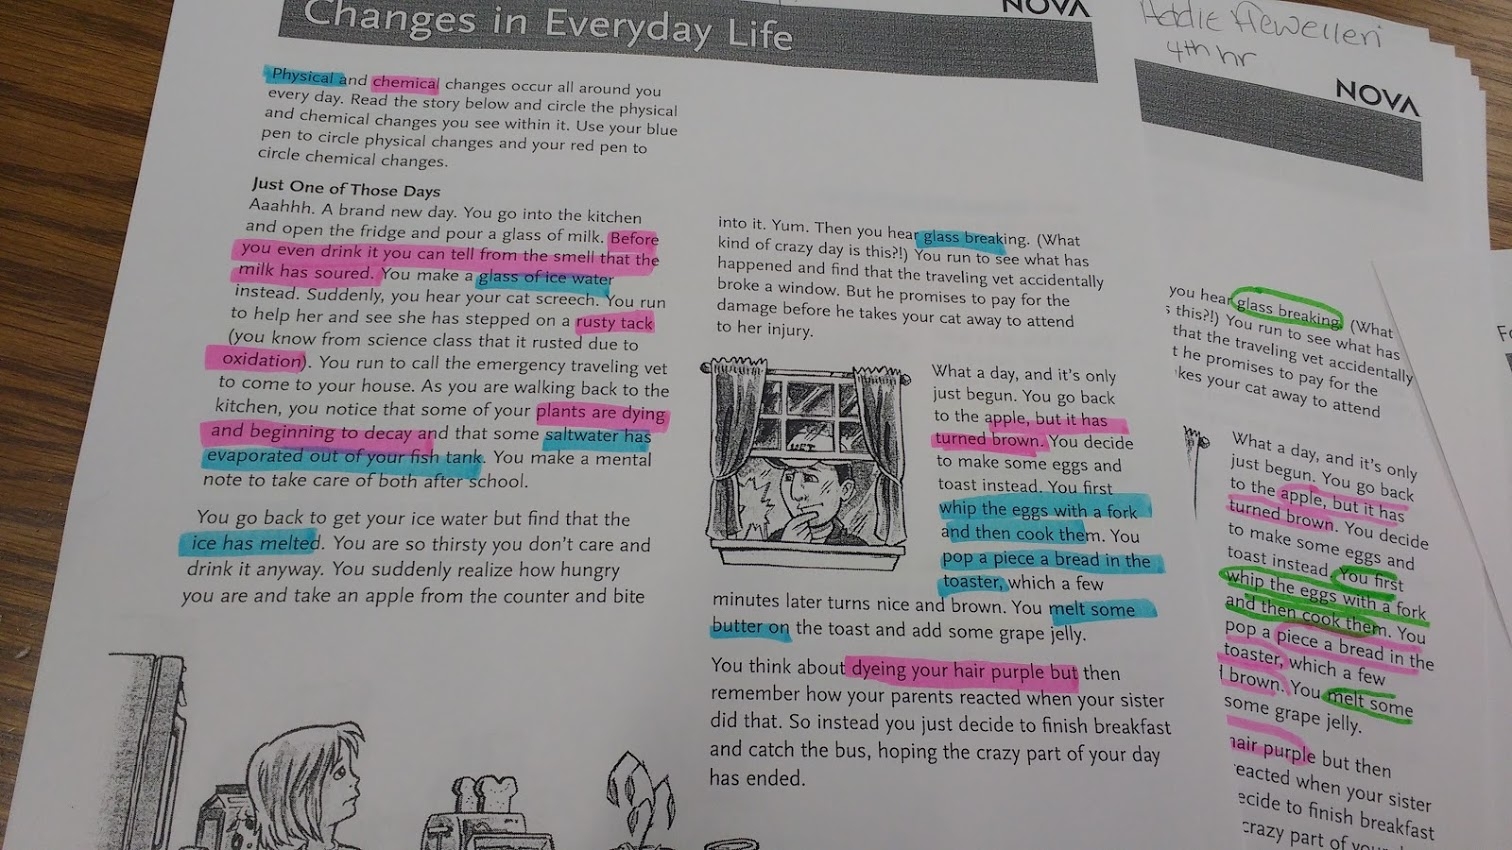 NOVA
Changes in Everyday Life
Physical and chemical changes occur all around you
every day. Read the story below and circle the physical
and chemical changes you see within it. Use your blue
pen to circle physical changes and your red pen to
circle chemical changes.
Just One of Those Days
Aaahhh. A brand new day. You go into the kitchen
and open the fridge and pour a glass of milk. Before
you even drink it you can tell from the smell that the
milk has soured. You make a glass of ice water
instead. Suddenly, you hear your cat screech. You run
to help her and see she has stepped on a rusty tack
(you know from science class that it rusted due to
oxidation). You run to call the emergency traveling vet
to come to your house. As you are walking back to the
kitchen, you notice that some of your plants are dying
and beginning to decay and that some saltwater has
evaporated out of your fish tank. You make a mental
note to take care of both after school.
You go back to get your ice water but find that the
ice has melted. You are so thirsty you don't care and
drink it anyway. You suddenly realize how hungry
you are and take an apple from the counter and bite
into it. Yum. Then you hear glass breaking. (What
kind of crazy day is this?!) You run to see what has
happened and find that the traveling vet accidentally
broke a window. But he promises to pay for the
damage before he takes your cat away to attend
to her injury.
VET
What a day, and it's only
just begun. You go back
to the apple, but it has
turned brown. You decide
to make some eggs and
toast instead. You first
whip the eggs with a fork
and then cook them. You
pop a piece a bread in the
toaster, which a few
minutes later turns nice and brown. You melt some
butter on the toast and add some grape jelly.
You think about dyeing your hair purple but then
remember how your parents reacted when your sister
did that. So instead you just decide to finish breakfast
and catch the bus, hoping the crazy part of your day
has ended.
Addie
4th hr
NOVA
you hear glass breaking. (What
this?!) You run to see what has
that the traveling vet accidentally
t he promises to pay for the
kes your cat away to attend
What a day, and it's only
just begun. You go back
to the apple, but it has
turned brown. You decide
to make some eggs and
toast instead. You first
whip the eggs with a fork
and then cook them. You
pop a piece a bread in the
toaster, which a few
brown. You melt some
some grape jelly.
hair purple but then
eacted when your sister
ecide to finish breakfast
crazy part of